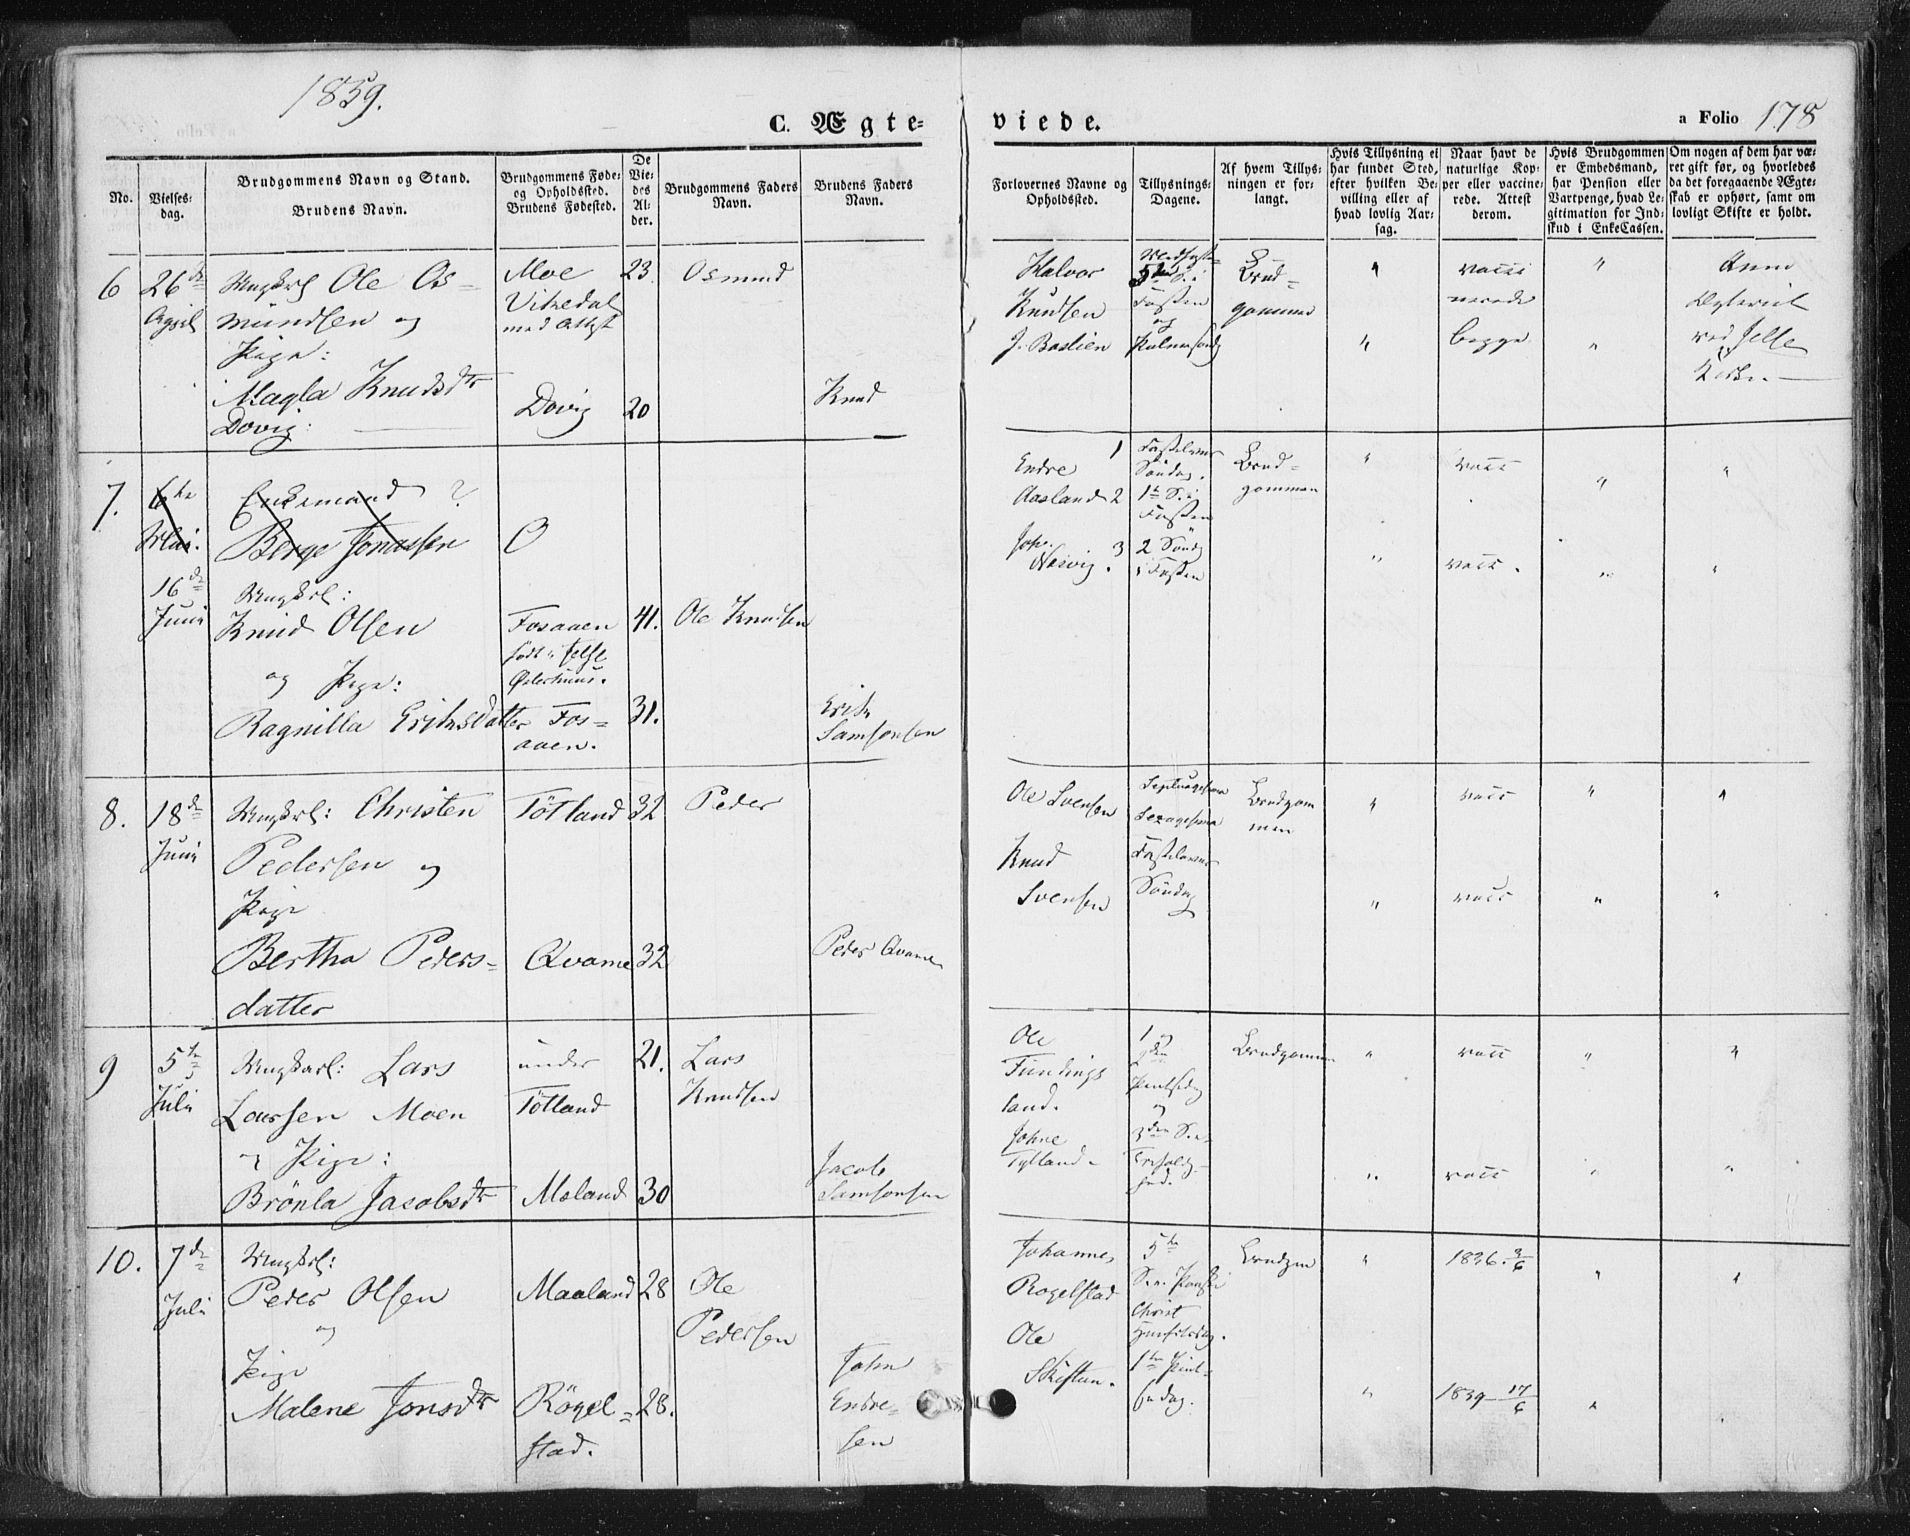 1859.
C. Ægte-
viede.
a Folio 178
No.
Vielses-
dag.
Brudgommens Navn og Stand.
Brudens Navn.
Brudgommens Føde-
og Opholdssted.
Brudens Fødested.
De
Vie-
des
Al-
der.
Brudgommens Faders
Navn.
Brudens Faders
Navn.
Forlovernes Navne og
Opholdssted.
Tillysnings-
Dagene.
Af hvem Tillys-
ningen er for-
langt.
Hvis Tillysning ei
har fundet Sted,
efter hvilken Be-
villing eller af
hvad lovlig Aar-
sag.
Naar havt de
naturlige Kop-
per eller vaccine-
rede. Attest
derom.
Hvis Brudgommen
er Embedsmand,
har Pension eller
Vartpenge, hvad Le-
gitimation for Ind-
skud i EnkeCassen.
Om nogen af dem har væ-
ret gift før, og hvorledes
da det foregaaende Ægte-
skab er ophørt, samt om
lovligt Skifte er holdt.
6
26de
April
Ungkrl Ole Os-
mundsen og
Pige:
Magla Knudsdtr
Dovig:
Moe
Vikedal
med Attest
Dovig
23
20
Osmund
Knud
Halvor
Knudsen
J. Bastien
Midfaste
5te S. i
Fasten
og
Palmesøndg
Brud-
gommen
"
"
vacci
nerede
begge
"
"
ved Jelse
Kirke.
7.
6te
Mai.
Enkemand ?
Berge Jonassen
O
16de
Juni
Ungkrl:
Knud Olsen
og Pige:
Ragnilla Eriksdatter
Fosaaen
født i Jelse
Østerhuus.
Fos-
aaen.
41.
31.
Ole Knudsen
Erik
Samsonsen
Endre 1
Aasland 2
Joh.
Næsvig. 3
Fastelavns
Søndag.
1te S. i
Fasten
2 Søndg
i Fasten
Brud-
gommen
"
"
vacc
vacc.
"
"
"
"
8.
18de
Juni
Ungkrl: Christen
Pedersen og
Pige
Bertha Peders-
datter
Tötland
Qvame
32
32
Peder
Peder Qvame
Ole Svensen
Knud
Svensen
Septuagesima
Sexagesima
Fastelavns
Søndag
Brudgom
men
"
"
vacc
vacc
"
"
"
"
9
5te
Juli
Ungkarl: Lars
Larssen Moen
og Pige:
Brönla Jacobsdtr
under
Tötland
Maland
21.
30
Lars
Knudsen
Jacob
Samsonsen
Ole
Fundings
land.
Johne
Tylland
1 og
2den
Pintsedg
og
3den S. e.
Trefoldig-
hed.
Brudgommen
"
"
vacc
vacc
"
"
"
"
10.
7de
Juli
Ungkrl:
Peder Olsen
og
Pige
Malene Jonsdtr
Maaland
Rögel-
stad.
28
28.
Ole
Pedersen
John
Endre-
sen
Johannes
Rogelstad
Ole
Skiftun.
5te
S. e. Paaske
Christ
Himfartsdag.
1te Pint-
sedag.
Brudgm
"
"
1836. 3/6
1839 17/6
"
"
"
"